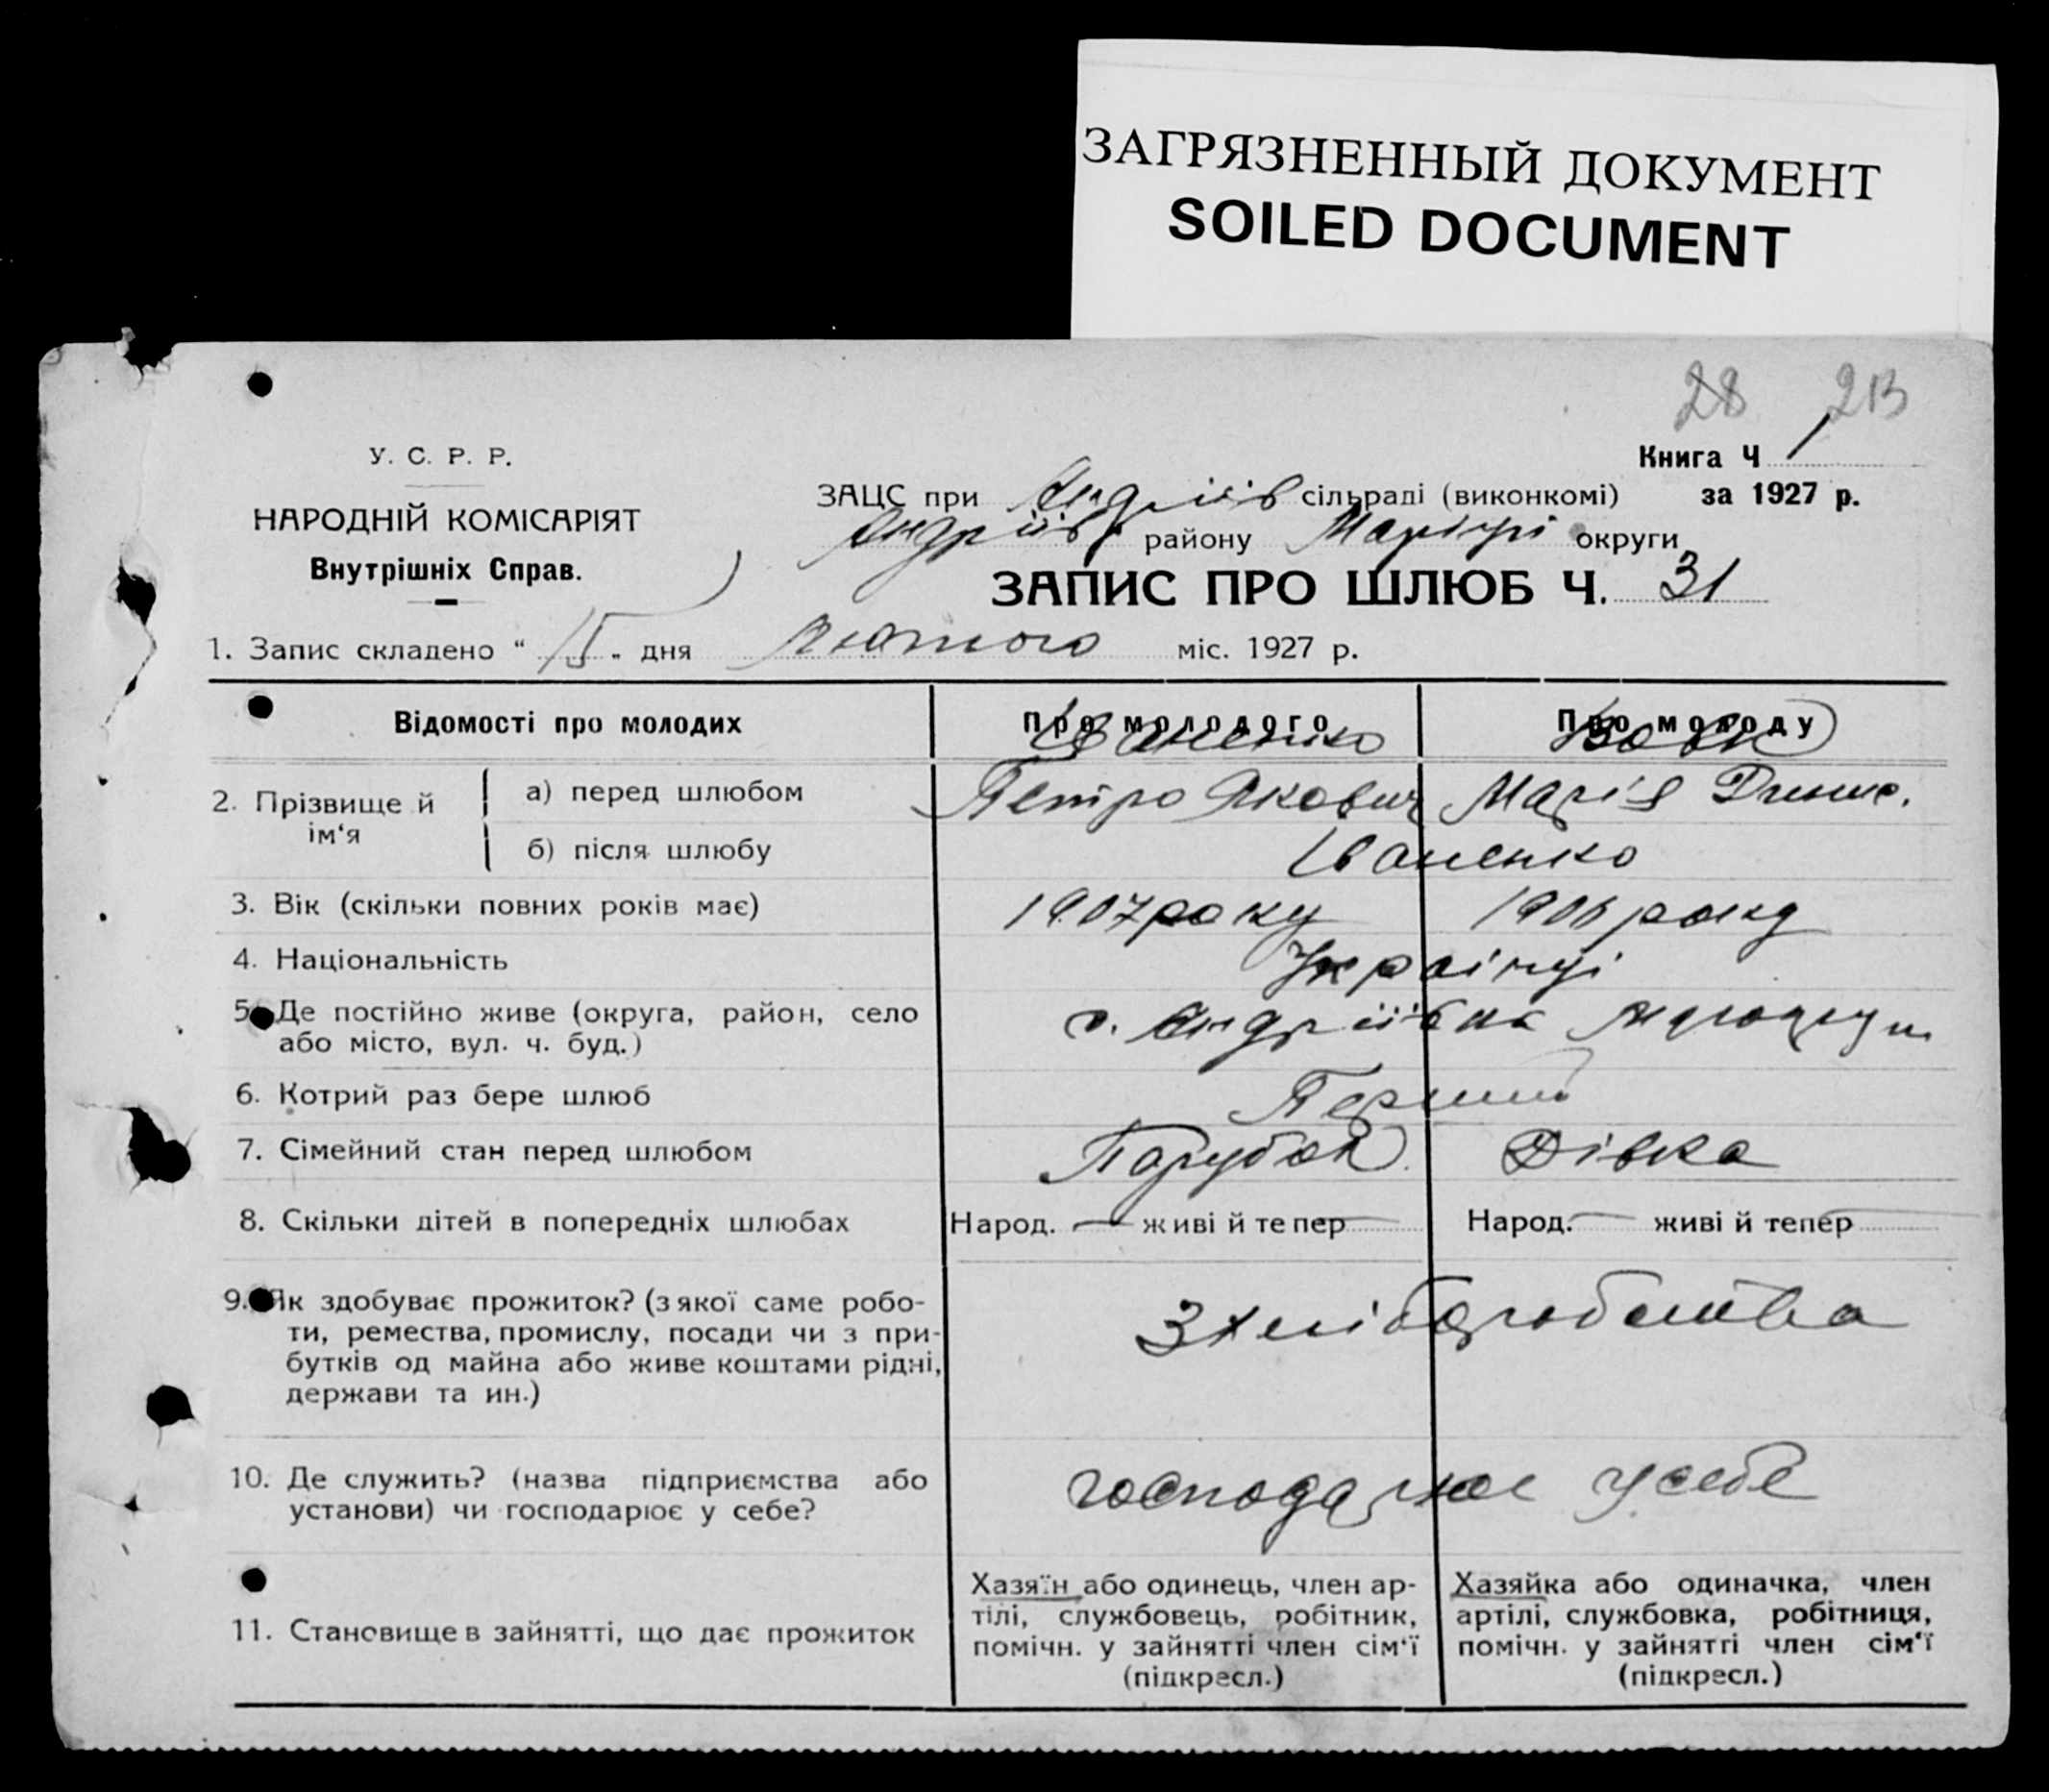 ЗАГРЯЗНЕННЫЙ ДОКУМЕНТ
SOILED DOCUMENT
28 213
Книга Ч 1
У. С. Р. Р.
ЗАЦС при Андріїв сільраді (виконкомі) за 1927 р.
НАРОДНІЙ КОМІСАРІЯТ
Андріїв району Маріуп округи
Внутрішніх Справ.
ЗАПИС ПРО ШЛЮБ Ч. 31
1. Запис складено “ 15 „ дня лютого міс. 1927 р.
Відомості про молодих Про молодого Про молоду
Іваненко Вовк
2. Прізвище й ім‘я а) перед шлюбом Петро Якович Марія
б) після шлюбу Іваненко
3. Вік (скільки повних років має) 1907 року 1906 року
4. Національність Українці
5. Де постійно живе (округа, район, село с. Андріївка
або місто, вул. ч. буд.)
6. Котрий раз бере шлюб Перший
7. Сімейний стан перед шлюбом Парубок Дівка
8. Скільки дітей в попередніх шлюбах Народ. — живі й тепер — Народ. — живі й тепер —
9. Як здобуває прожиток? (з якої саме робо-
ти, ремества, промислу, посади чи з при- З хліборобства
бутків од майна або живе коштами рідні,
держави та ин.)
10. Де служить? (назва підприємства або господарює у себе
установи) чи господарює у себе?
Хазяїн або одинець, член ар- Хазяйка або одиначка, член
тілі, службовець, робітник, артілі, службовка, робітниця,
11. Становище в зайнятті, що дає прожиток помічн. у зайнятті член сім‘ї помічн. у зайнятті член сім‘ї
(підкресл.) (підкресл.)